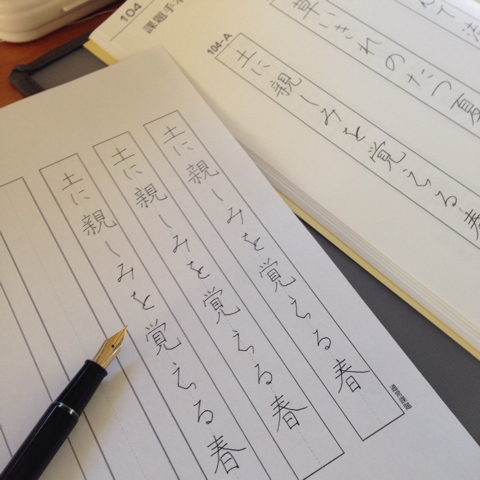 104
課題手
草いきれのたつ夏
104-A
土に親しみを覚える春
土に親しみを覚える春
土に親しみを覚える春
土に親しみを覚える春